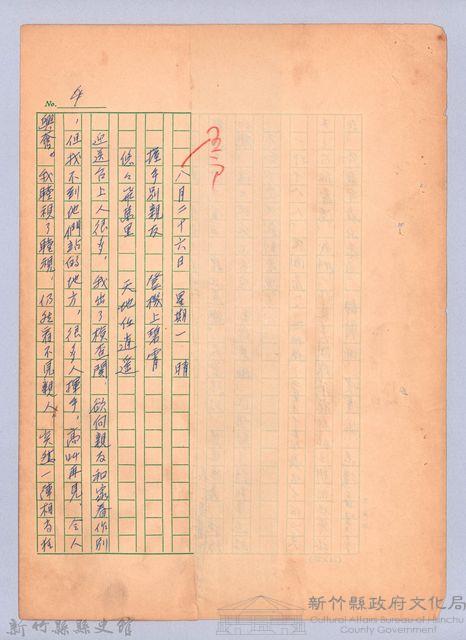 No. 4
八月二十六日 星期一 晴
握手別親友 登機上碧霄
悠々飛萬里 天地任逍遥
迎送台上人很多，我出了檢查関，欲向親友和家眷作別
，但找不到他們站的地方，很多人揮手，高叫再見，令人
興奮。我睜視了睜視，仍然看不見親人。突然一陣
新竹縣縣史館
新竹縣政府文化局
Cultural Affairs Bureau of Hsinchu
County Government